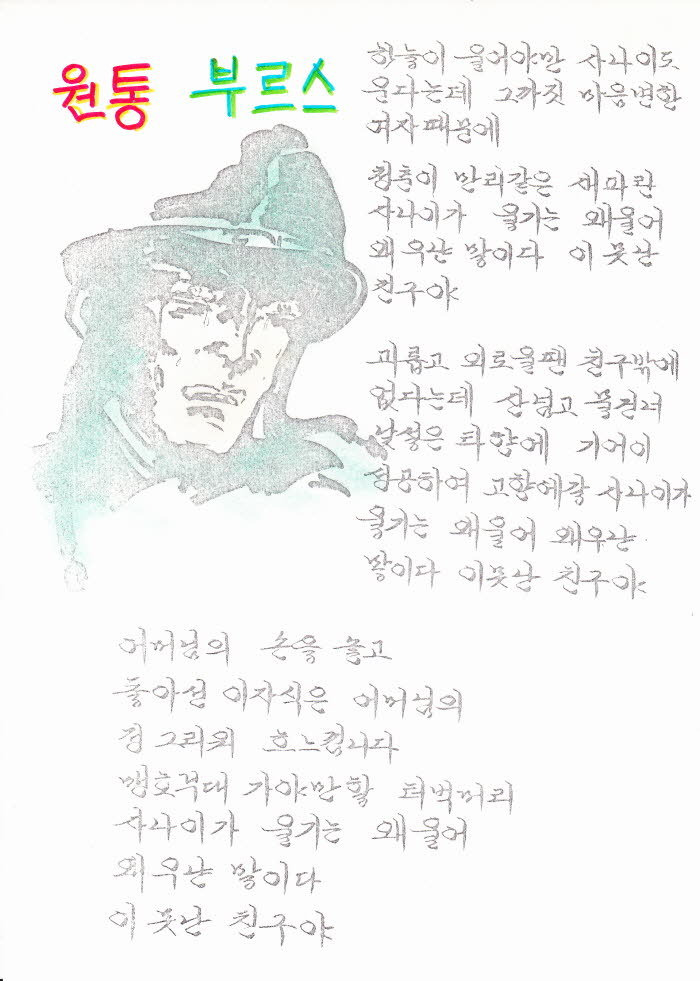 원통 부르스
하늘이 울어야만 사나이도
운다는데 그까짓 마음변한
여자때문에
청춘이 만리같은 새파란
사나이가 울기는 왜울어
왜 우냔 말이다 이 못난
친구야
괴롭고 외로울땐 친구밖에
없다는데 산넘고 물건너
낯설은 타향에 기어이
성공하여 고향에갈 사나이가
울기는 왜울어 왜우냔
말이다 이못난 친구야
어머님의 손을 놓고
돌아선 이자식은 어머님의
정 그리워 흐느낍니다
맹호부대 가야만할 터벅머리
사나이가 울기는 왜울어
왜 우냔 말이다
이 못난 친구야